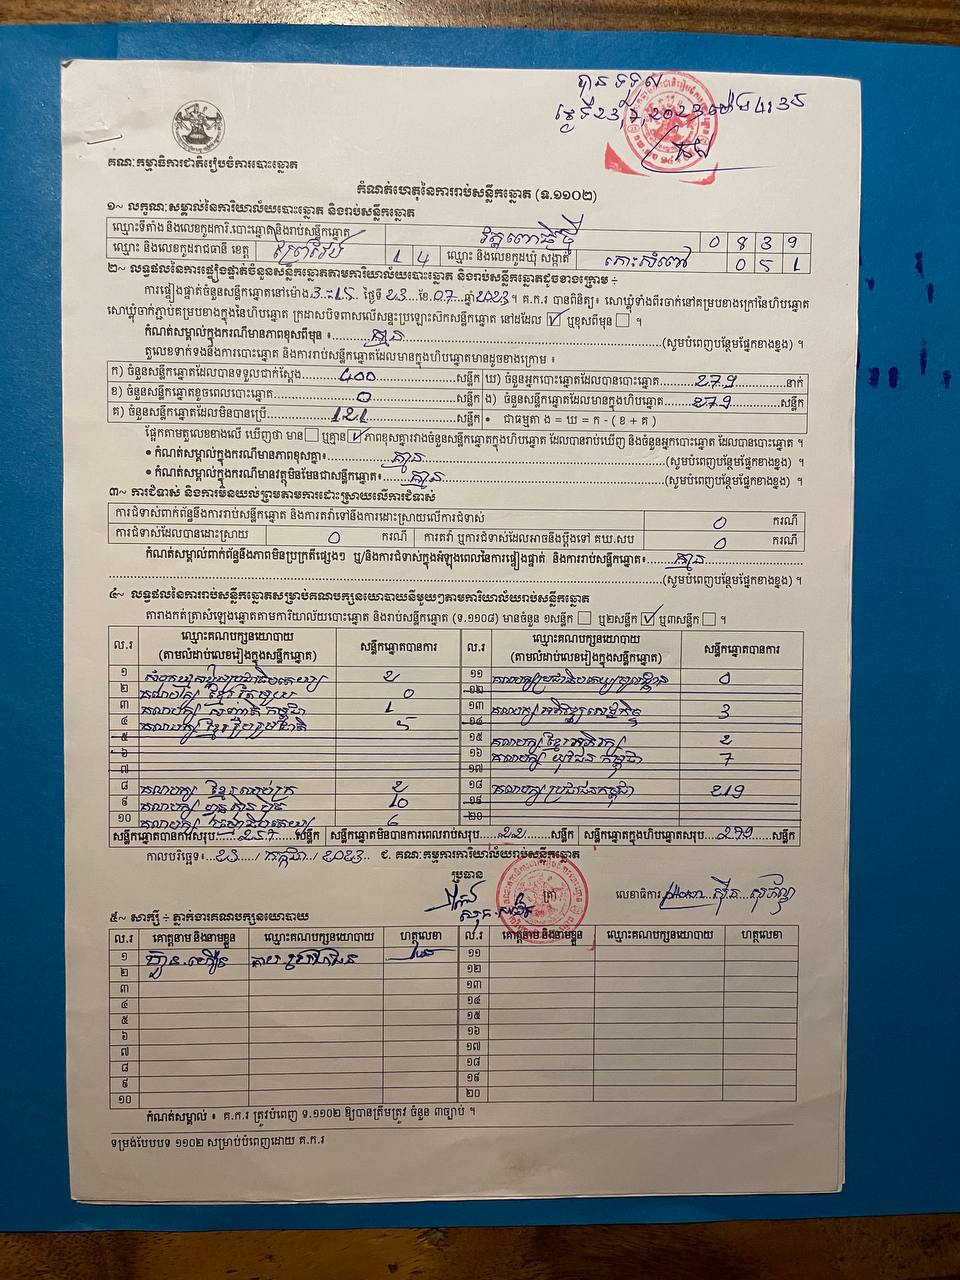 បានទទួល
ថ្ងៃទី23,7,2023 ម៉ោង 4:35
គណៈកម្មាធិការជាតិរៀបចំការបោះឆ្នោត
កំណត់ហេតុនៃការរាប់សន្លឹកឆ្នោត (ទ.១១០២)
១~ លក្ខណៈសម្គាល់នៃការិយាល័យបោះឆ្នោត និងរាប់សន្លឹកឆ្នោត
ឈ្មោះទីតាំង និងលេខកូដការិ.បោះឆ្នោតនិងរាប់សន្លឹកឆ្នោត 0839
ឈ្មោះ និងលេខកូដរាជធានី ខេត្ត ព្រៃវែង 14 ឈ្មោះ និងលេខកូដឃុំ សង្កាត់ កោះសំពៅ 051
២~ លទ្ធផលនៃការផ្ទៀងផ្ទាត់ចំនួនសន្លឹកឆ្នោតតាមការិយាល័យបោះឆ្នោត និងរាប់សន្លឹកឆ្នោតដូចខាងក្រោម ÷
ការផ្ទៀងផ្ទាត់ចំនួនសន្លឹកឆ្នោតនៅម៉ោង 3:15 ថ្ងៃទី 23 ខែ 07 ឆ្នាំ 2023 ។ គ.ក.រ បានពិនិត្យ៖ សោឃ្លុំទាំងពីរចាក់នៅគម្របខាងក្រៅនៃហិបឆ្នោត
សោឃ្លុំចាក់ភ្ជាប់គម្របខាងក្នុងនៃហិបឆ្នោត ក្រដាសបិទពាសលើសន្ទះប្រឡោះសឹកសន្លឹកឆ្នោត នៅដដែល ☑ ឬខុសពីមុន ☐ ។
កំណត់សម្គាល់ក្នុងករណីមានភាពខុសពីមុន ៖ គ្មាន (សូមបំពេញបន្ថែមផ្នែកខាងខ្នង) ។
តួលេខទាក់ទងនឹងការបោះឆ្នោត និងការរាប់សន្លឹកឆ្នោតដែលមានក្នុងហិបឆ្នោតមានដូចខាងក្រោម ៖
ក) ចំនួនសន្លឹកឆ្នោតដែលបានទទួលជាក់ស្តែង 400 សន្លឹក ឃ) ចំនួនអ្នកបោះឆ្នោតដែលបានបោះឆ្នោត 279 នាក់
ខ) ចំនួនសន្លឹកឆ្នោតខូចពេលបោះឆ្នោត 0 សន្លឹក ង) ចំនួនសន្លឹកឆ្នោតដែលមានក្នុងហិបឆ្នោត 279 សន្លឹក
គ) ចំនួនសន្លឹកឆ្នោតដែលមិនបានប្រើ 121 សន្លឹក • ជាធម្មតា ង = ឃ = ក - ( ខ + គ )
ផ្អែកតាមតួលេខខាងលើ ឃើញថា មាន ☐ ឬគ្មាន ☑ ភាពខុសគ្នារវាងចំនួនសន្លឹកឆ្នោតក្នុងហិបឆ្នោត ដែលបានរាប់ឃើញ និងចំនួនអ្នកបោះឆ្នោត ដែលបានបោះឆ្នោត ។
• កំណត់សម្គាល់ក្នុងករណីមានភាពខុសគ្នា៖ គ្មាន (សូមបំពេញបន្ថែមផ្នែកខាងខ្នង) ។
• កំណត់សម្គាល់ក្នុងករណីមានវត្ថុមិនមែនជាសន្លឹកឆ្នោត៖ គ្មាន (សូមបំពេញបន្ថែមផ្នែកខាងខ្នង) ។
៣~ ការជំទាស់ និងការមិនយល់ព្រមតាមការដោះស្រាយលើការជំទាស់
ការជំទាស់ពាក់ព័ន្ធនឹងការរាប់សន្លឹកឆ្នោត និងការតវ៉ាទៅនឹងការដោះស្រាយលើការជំទាស់ 0 ករណី
ការជំទាស់ដែលបានដោះស្រាយ 0 ករណី ការតវ៉ា ឬការជំទាស់ដែលអាចនឹងប្តឹងទៅ គឃ.សប 0 ករណី
កំណត់សម្គាល់ពាក់ព័ន្ធនឹងភាពមិនប្រក្រតីផ្សេងៗ ឬ/និងការជំទាស់ក្នុងអំឡុងពេលនៃការផ្ទៀងផ្ទាត់ និងការរាប់សន្លឹកឆ្នោត៖ គ្មាន
(សូមបំពេញបន្ថែមផ្នែកខាងខ្នង) ។
៤~ លទ្ធផលនៃការរាប់សន្លឹកឆ្នោតសម្រាប់គណបក្សនយោបាយនីមួយៗតាមការិយាល័យរាប់សន្លឹកឆ្នោត
តារាងកត់ត្រាសំឡេងឆ្នោតតាមការិយាល័យបោះឆ្នោត និងរាប់សន្លឹកឆ្នោត (ទ.១១០៨) មានចំនួន ១សន្លឹក ☐ ឬ២សន្លឹក ☑ ឬ៣សន្លឹក ☐ ។
ល.រ ឈ្មោះគណបក្សនយោបាយ (តាមលំដាប់លេខរៀងក្នុងសន្លឹកឆ្នោត) សន្លឹកឆ្នោតបានការ ល.រ ឈ្មោះគណបក្សនយោបាយ (តាមលំដាប់លេខរៀងក្នុងសន្លឹកឆ្នោត) សន្លឹកឆ្នោតបានការ
១ សំបុកឃ្មុំសង្គមប្រជាធិបតេយ្យ 2 ១១ គណបក្សប្រជាធិបតេយ្យមូលដ្ឋាន 0
២ គណបក្ស ខ្មែរតែមួយ 0 ១២
៣ គណបក្ស សញ្ជាតិកម្ពុជា 1 ១៣ គណបក្ស អភិវឌ្ឍសេដ្ឋកិច្ច 3
៤ គណបក្ស ខ្មែររួបរួមជាតិ 5 ១៤
៥ ១៥ គណបក្ស ខ្មែរអភិរក្ស 2
៦ ១៦ គណបក្ស យុវជនកម្ពុជា 7
៧ ១៧
៨ គណបក្ស ខ្មែរឈប់ក្រ 2 ១៨ គណបក្ស ប្រជាជនកម្ពុជា 219
៩ គណបក្ស ហ្វ៊ុនស៊ិនប៉ិច 10 ១៩
១០ គណបក្ស ធម្មាធិបតេយ្យ 6 ២០
សន្លឹកឆ្នោតបានការសរុប 257 សន្លឹក សន្លឹកឆ្នោតមិនបានការពេលរាប់សរុប 22 សន្លឹក សន្លឹកឆ្នោតក្នុងហិបឆ្នោតសរុប 279 សន្លឹក
កាលបរិច្ឆេទ៖ 23 / កក្កដា / 2023 ជ. គណៈកម្មការការិយាល័យរាប់សន្លឹកឆ្នោត
ប្រធាន
ត្រា លេខាធិការ
៥~ សាក្សី ÷ ភ្នាក់ងារគណបក្សនយោបាយ
ល.រ គោត្តនាម និងនាមខ្លួន ឈ្មោះគណបក្សនយោបាយ ហត្ថលេខា ល.រ គោត្តនាម និងនាមខ្លួន ឈ្មោះគណបក្សនយោបាយ ហត្ថលេខា
១ ១១
២ ១២
៣ ១៣
៤ ១៤
៥ ១៥
៦ ១៦
៧ ១៧
៨ ១៨
៩ ១៩
១០ ២០
កំណត់សម្គាល់ ៖ គ.ក.រ ត្រូវបំពេញ ទ.១១០២ ឱ្យបានត្រឹមត្រូវ ចំនួន ៣ច្បាប់ ។
ទម្រង់បែបបទ ១១០២ សម្រាប់បំពេញដោយ គ.ក.រ